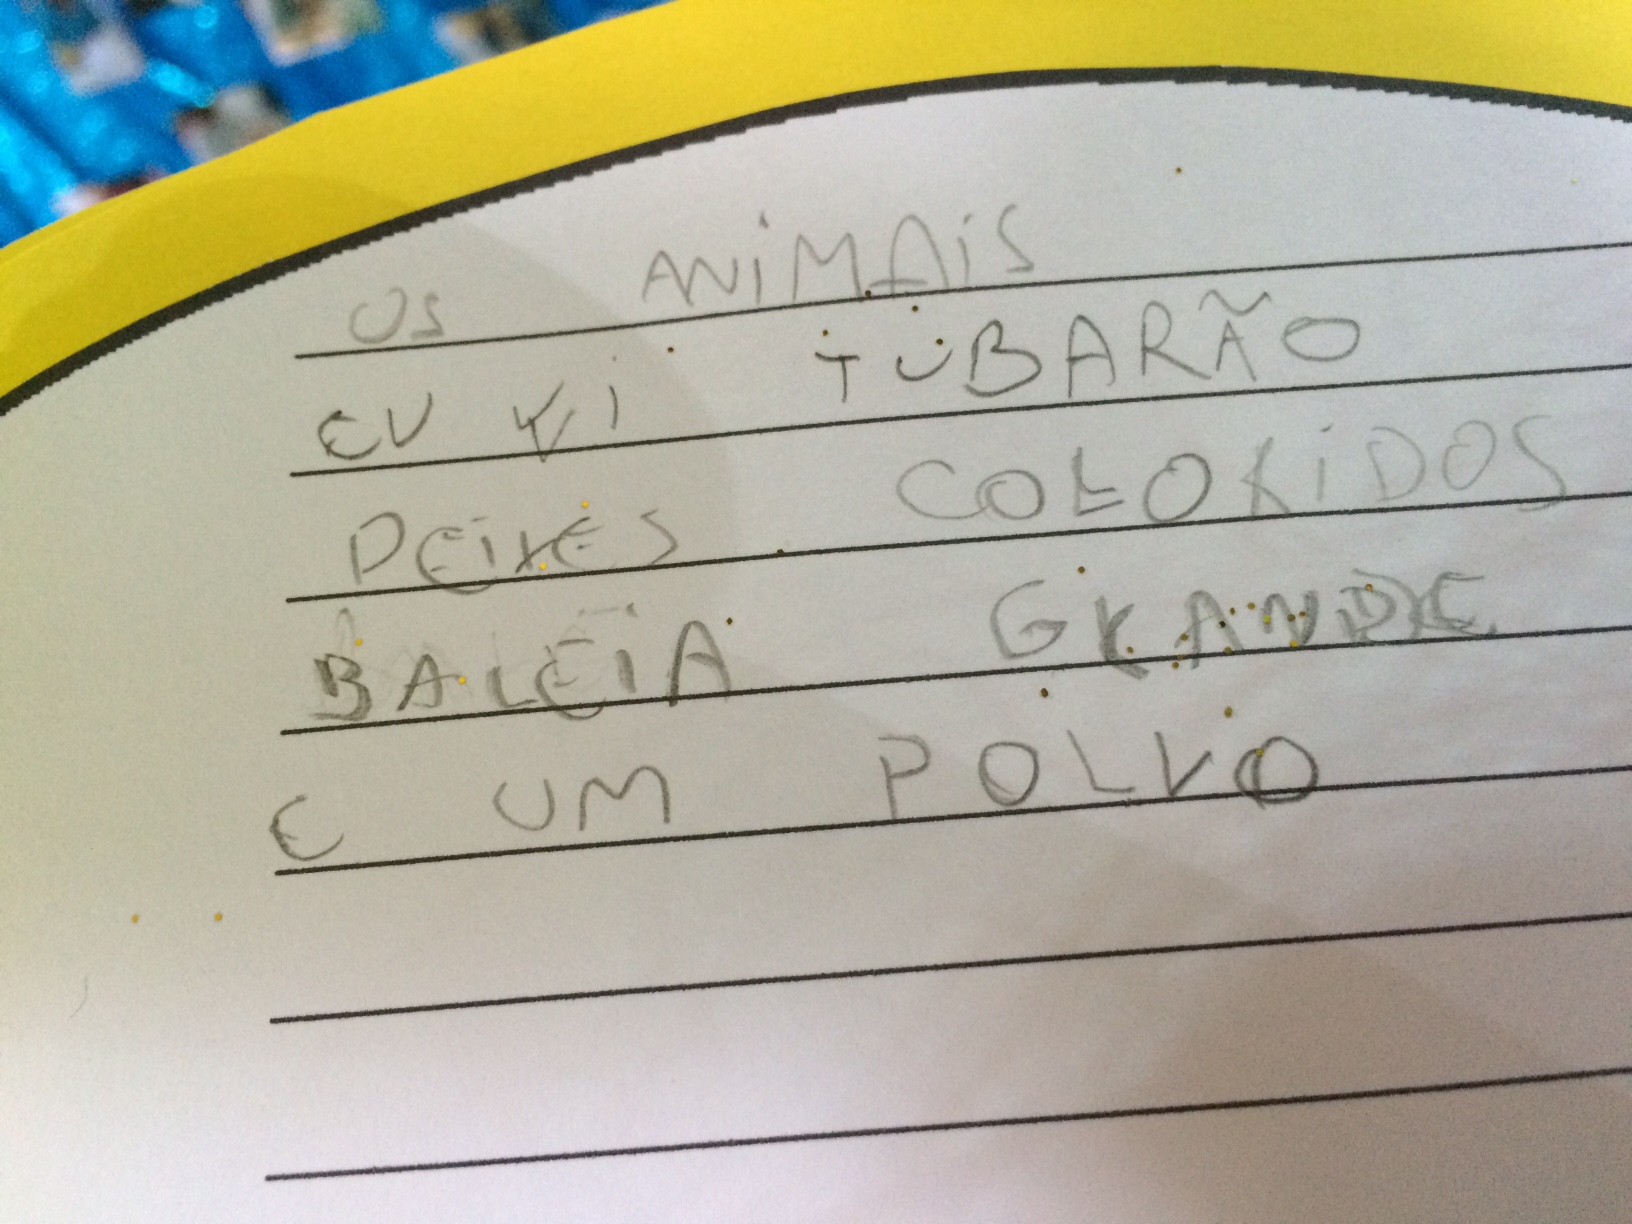 OS ANiMAiS
EU Vi TUBARÃO
PEiXES COLORiDOS
BALEiA GRANDE
E UM POLVO